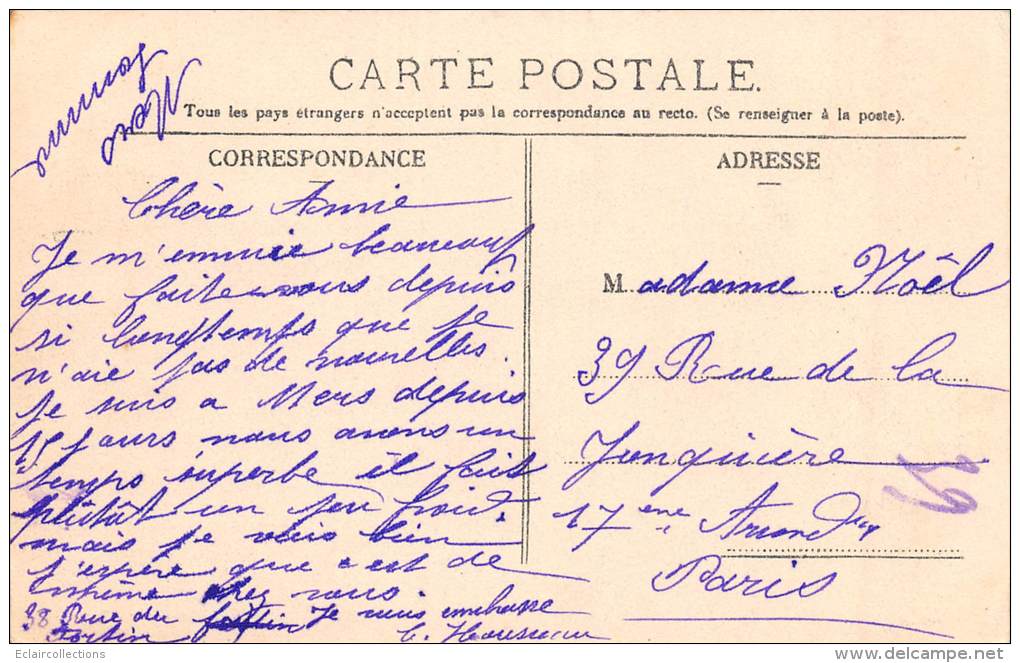 CARTE POSTALE.
Tous les pays étrangers n'acceptent pas la correspondance au recto. (Se renseigner à la poste).
CORRESPONDANCE
Chère Amie
Je m'ennuie beaucoup
que faite vous depuis
si longtemps que je
n'aie pas de nouvelles.
Je suis a Mers depuis
15 jours nous avons un
temps superbe il fait
plutôt un peu froid.
mais je vais bien
j'espère que c'est de
même chez vous.
Je vous embrasse
38 Rue du
Fortin
ADRESSE
Madame Nöel
39 Rue de la
Jonquière
17 eme
Paris
Eclaircollections